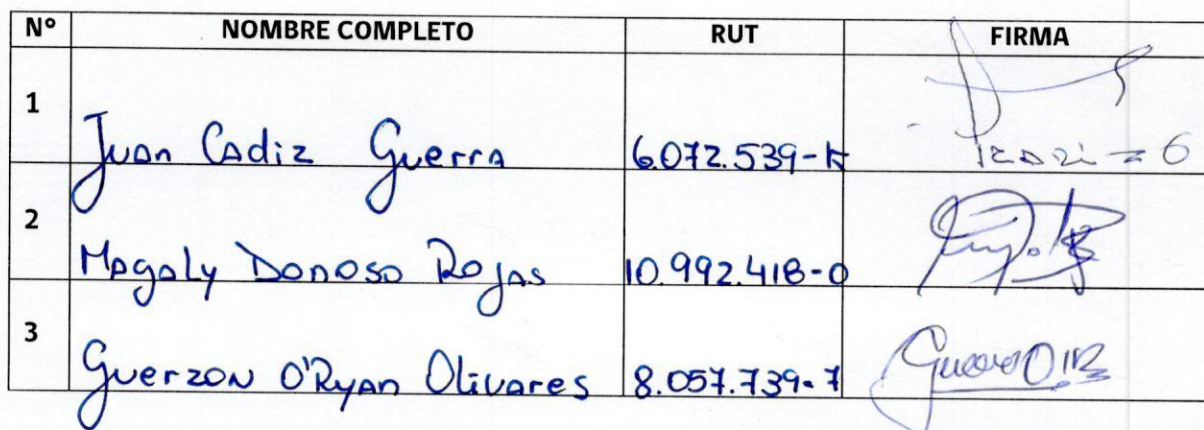 Nº NOMBRE COMPLETO RUT FIRMA
1 Juan Cadiz Guerra 6.072.539-K
2 Magaly Donoso Rojas 10.992.418-0
3 Guerzon O'Ryan Olivares 8.057.739-7